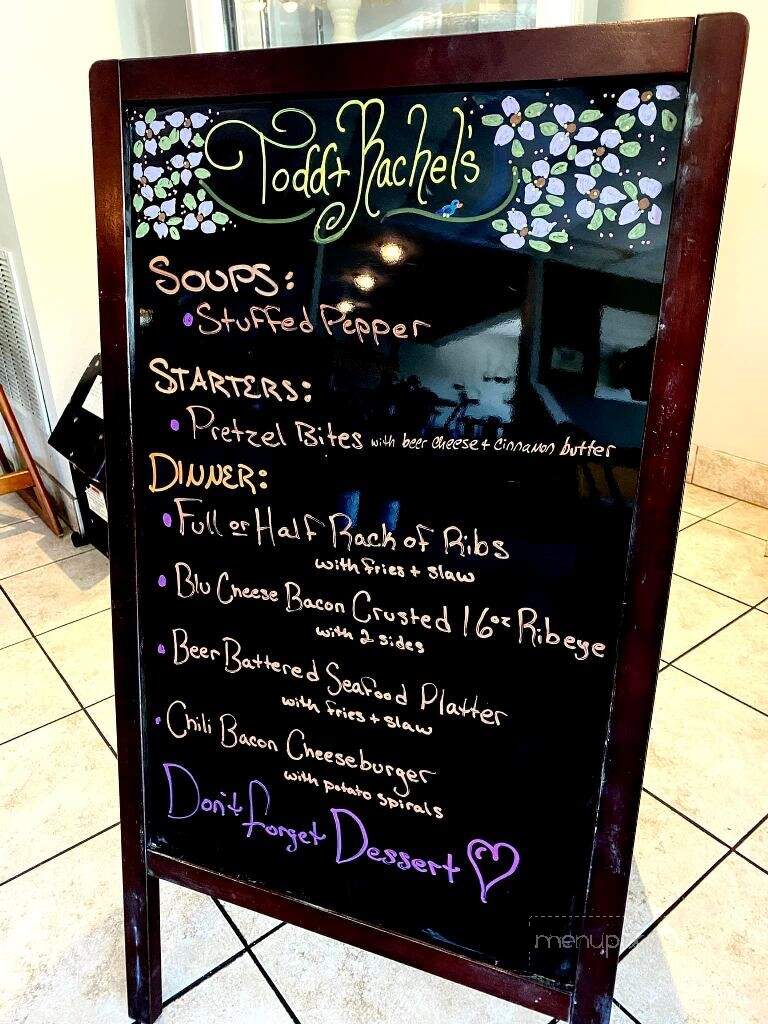 Todd + Rachel's
SOUPS:
• Stuffed Pepper
STARTERS:
• Pretzel Bites with beer cheese + cinnamon butter
DINNER:
• Full or Half Rack of Ribs
with fries + slaw
• Blu Cheese Bacon Crusted 16oz Ribeye
with 2 sides
• Beer Battered Seafood Platter
with fries + slaw
• Chili Bacon Cheeseburger
with potato spirals
Don't forget Dessert
menupix